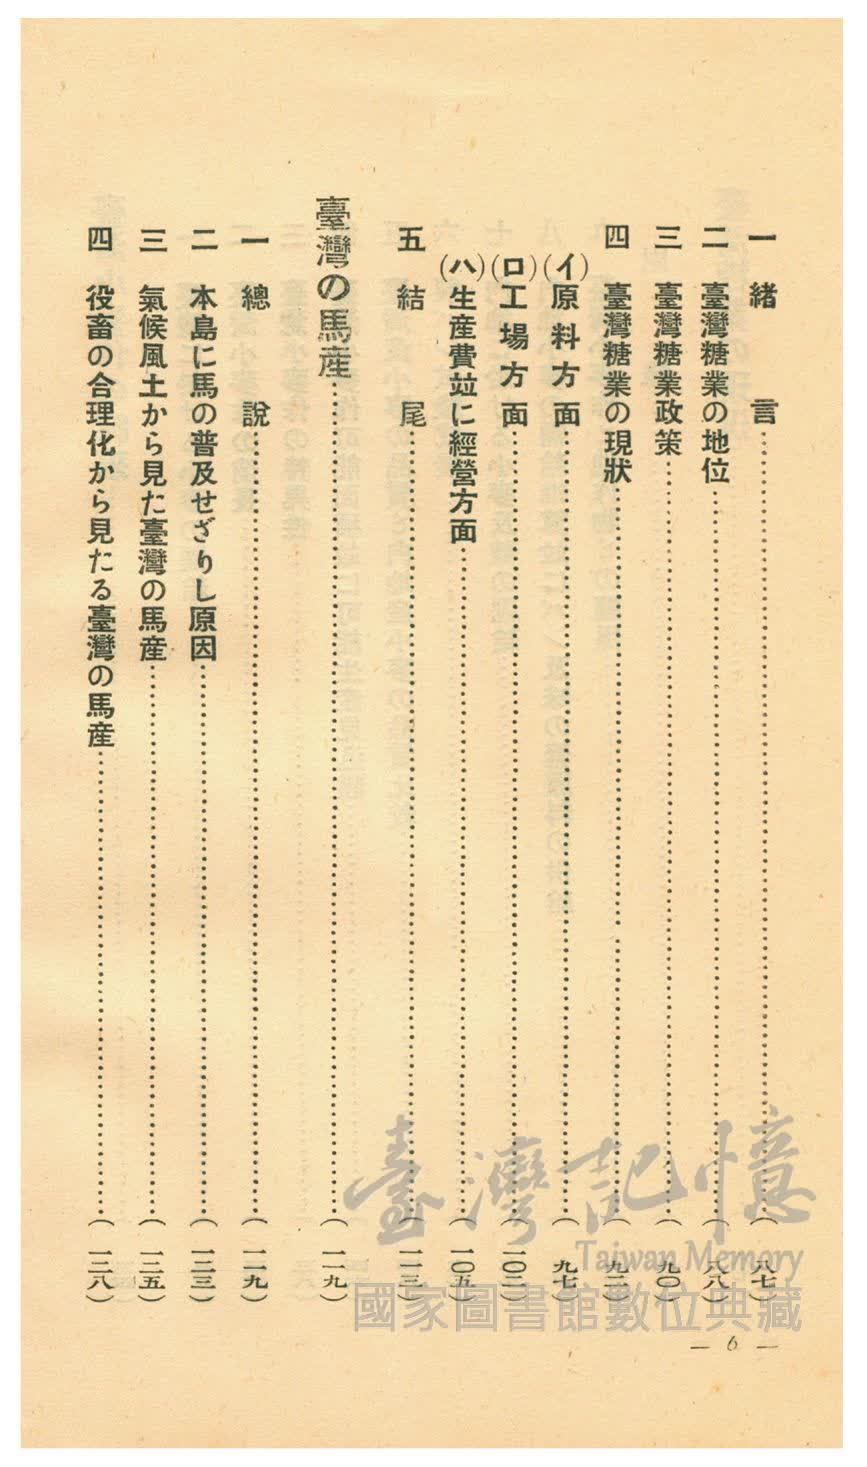 一 緒言……(八七)
二 臺灣糖業の地位……(八八)
三 臺灣糖業政策……(九〇)
四 臺灣糖業の現狀……(九二)
(イ)原料方面……(九七)
(ロ)工場方面……(一〇二)
(ハ)生産費竝に經營方面……(一〇五)
五 結尾……(一一三)
臺灣の馬産……(一一九)
一 總說……(一一九)
二 本島に馬の普及せざりし原因……(一二三)
三 氣候風土から見た臺灣の馬産……(一二五)
四 役畜の合理化から見たる臺灣の馬産……(一二八)
— 6 —
臺灣記憶
Taiwan Memory
國家圖書館數位典藏